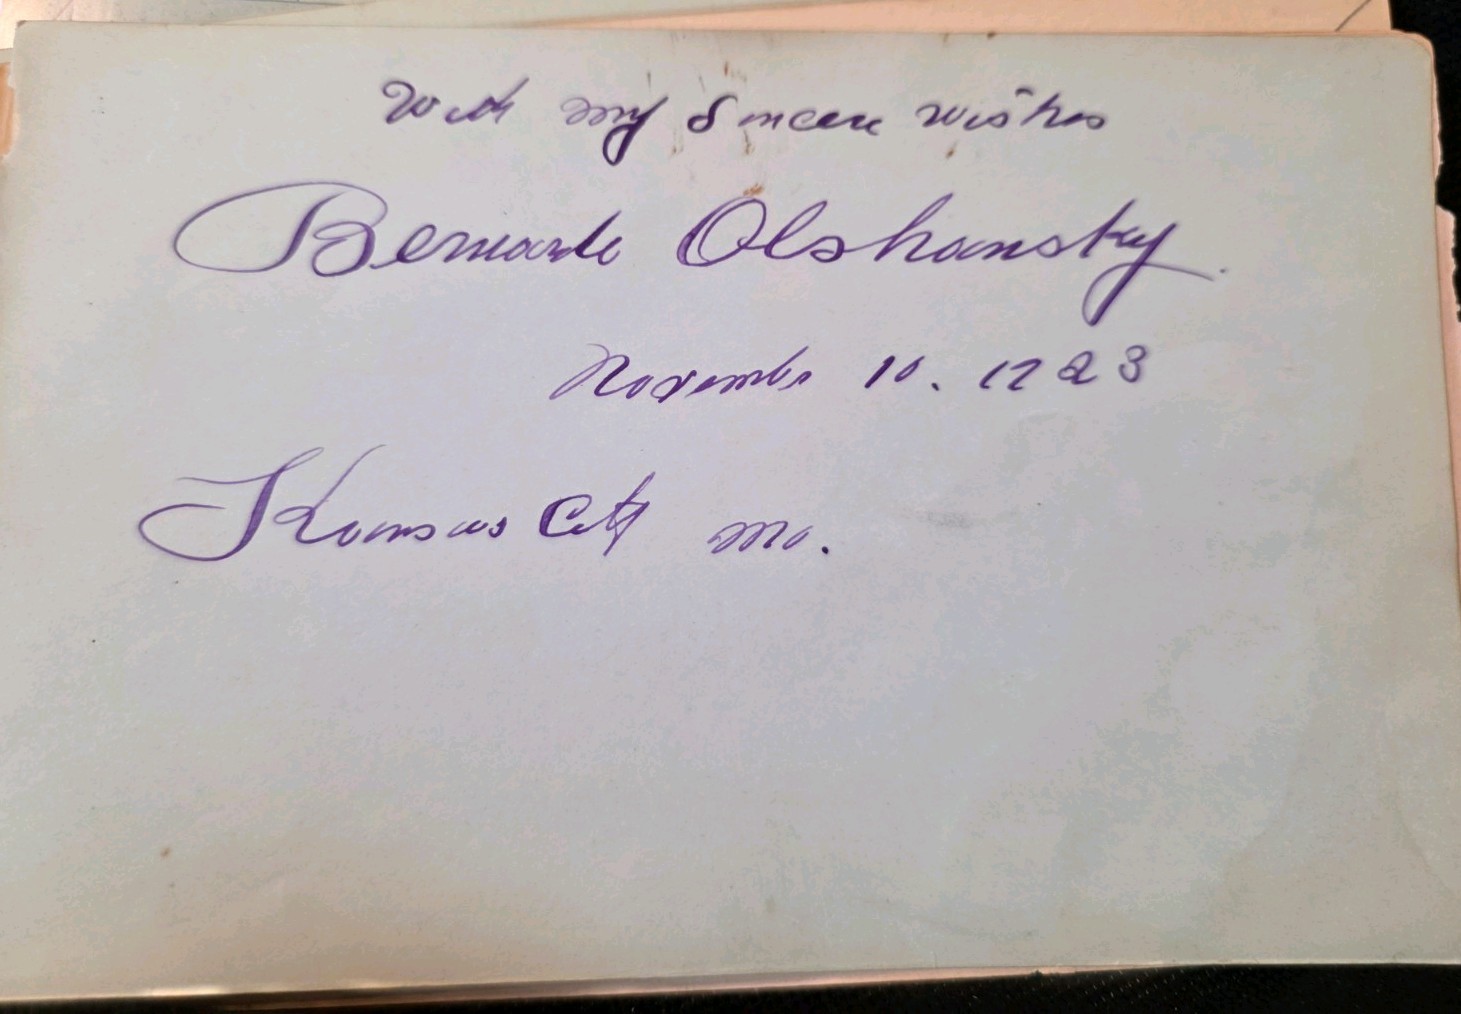 With my Sincere wishes
Bernardo Olshansky.
November 10. 1923
Kansas City Mo.